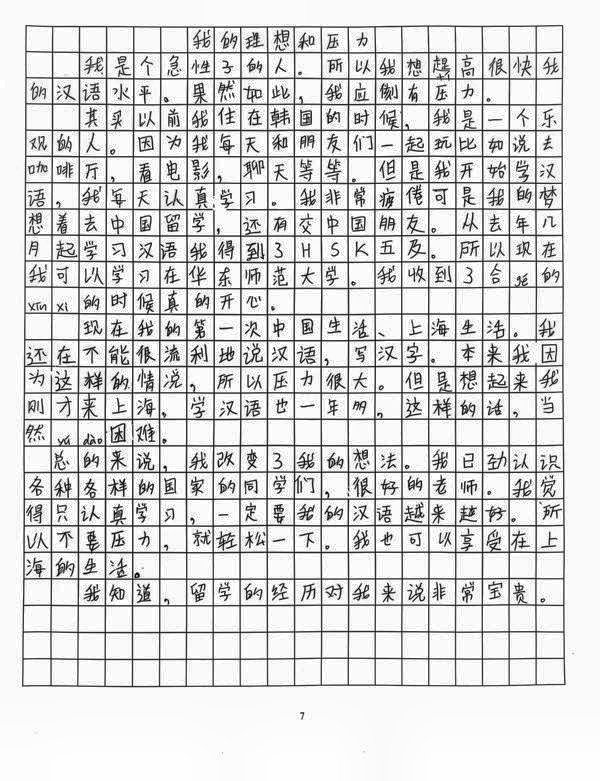 我的理想和压力
我是个急性子的人。所以我想提高很快我
的汉语水平。果然如此，我应侧有压力。
其实以前我住在韩国的时候，我是一个乐
观的人。因为我每天和朋友们一起玩比如说去
咖啡厅，看电影，聊天等等。但是我开始学汉
语，我每天认真学习。我非常疲倦可是我的梦
想着去中国留学，还有交中国朋友。从去年几
月起学习汉语我得到了HSK五及。所以现在
我可以学习在华东师范大学。我收到了合gé的
xìn xi的时候真的开心。
现在我的第一次中国生活、上海生活。我
还在不能很流利地说汉语，写汉字。本来我因
为这样的情说，所以压力很大。但是想起来我
刚才来上海，学汉语也一年多，这样的话，当
然 dào困难。
总的来说，我改变了我的想法。我已劲认识
各种各样的国家的同学们，很好的老师。我觉
得只认真学习，一定要我的汉语越来越好。所
以不要压力，就轻松一下。我也可以享受在上
海的生活。
我知道，留学的经历对我来说非常宝贵。
7